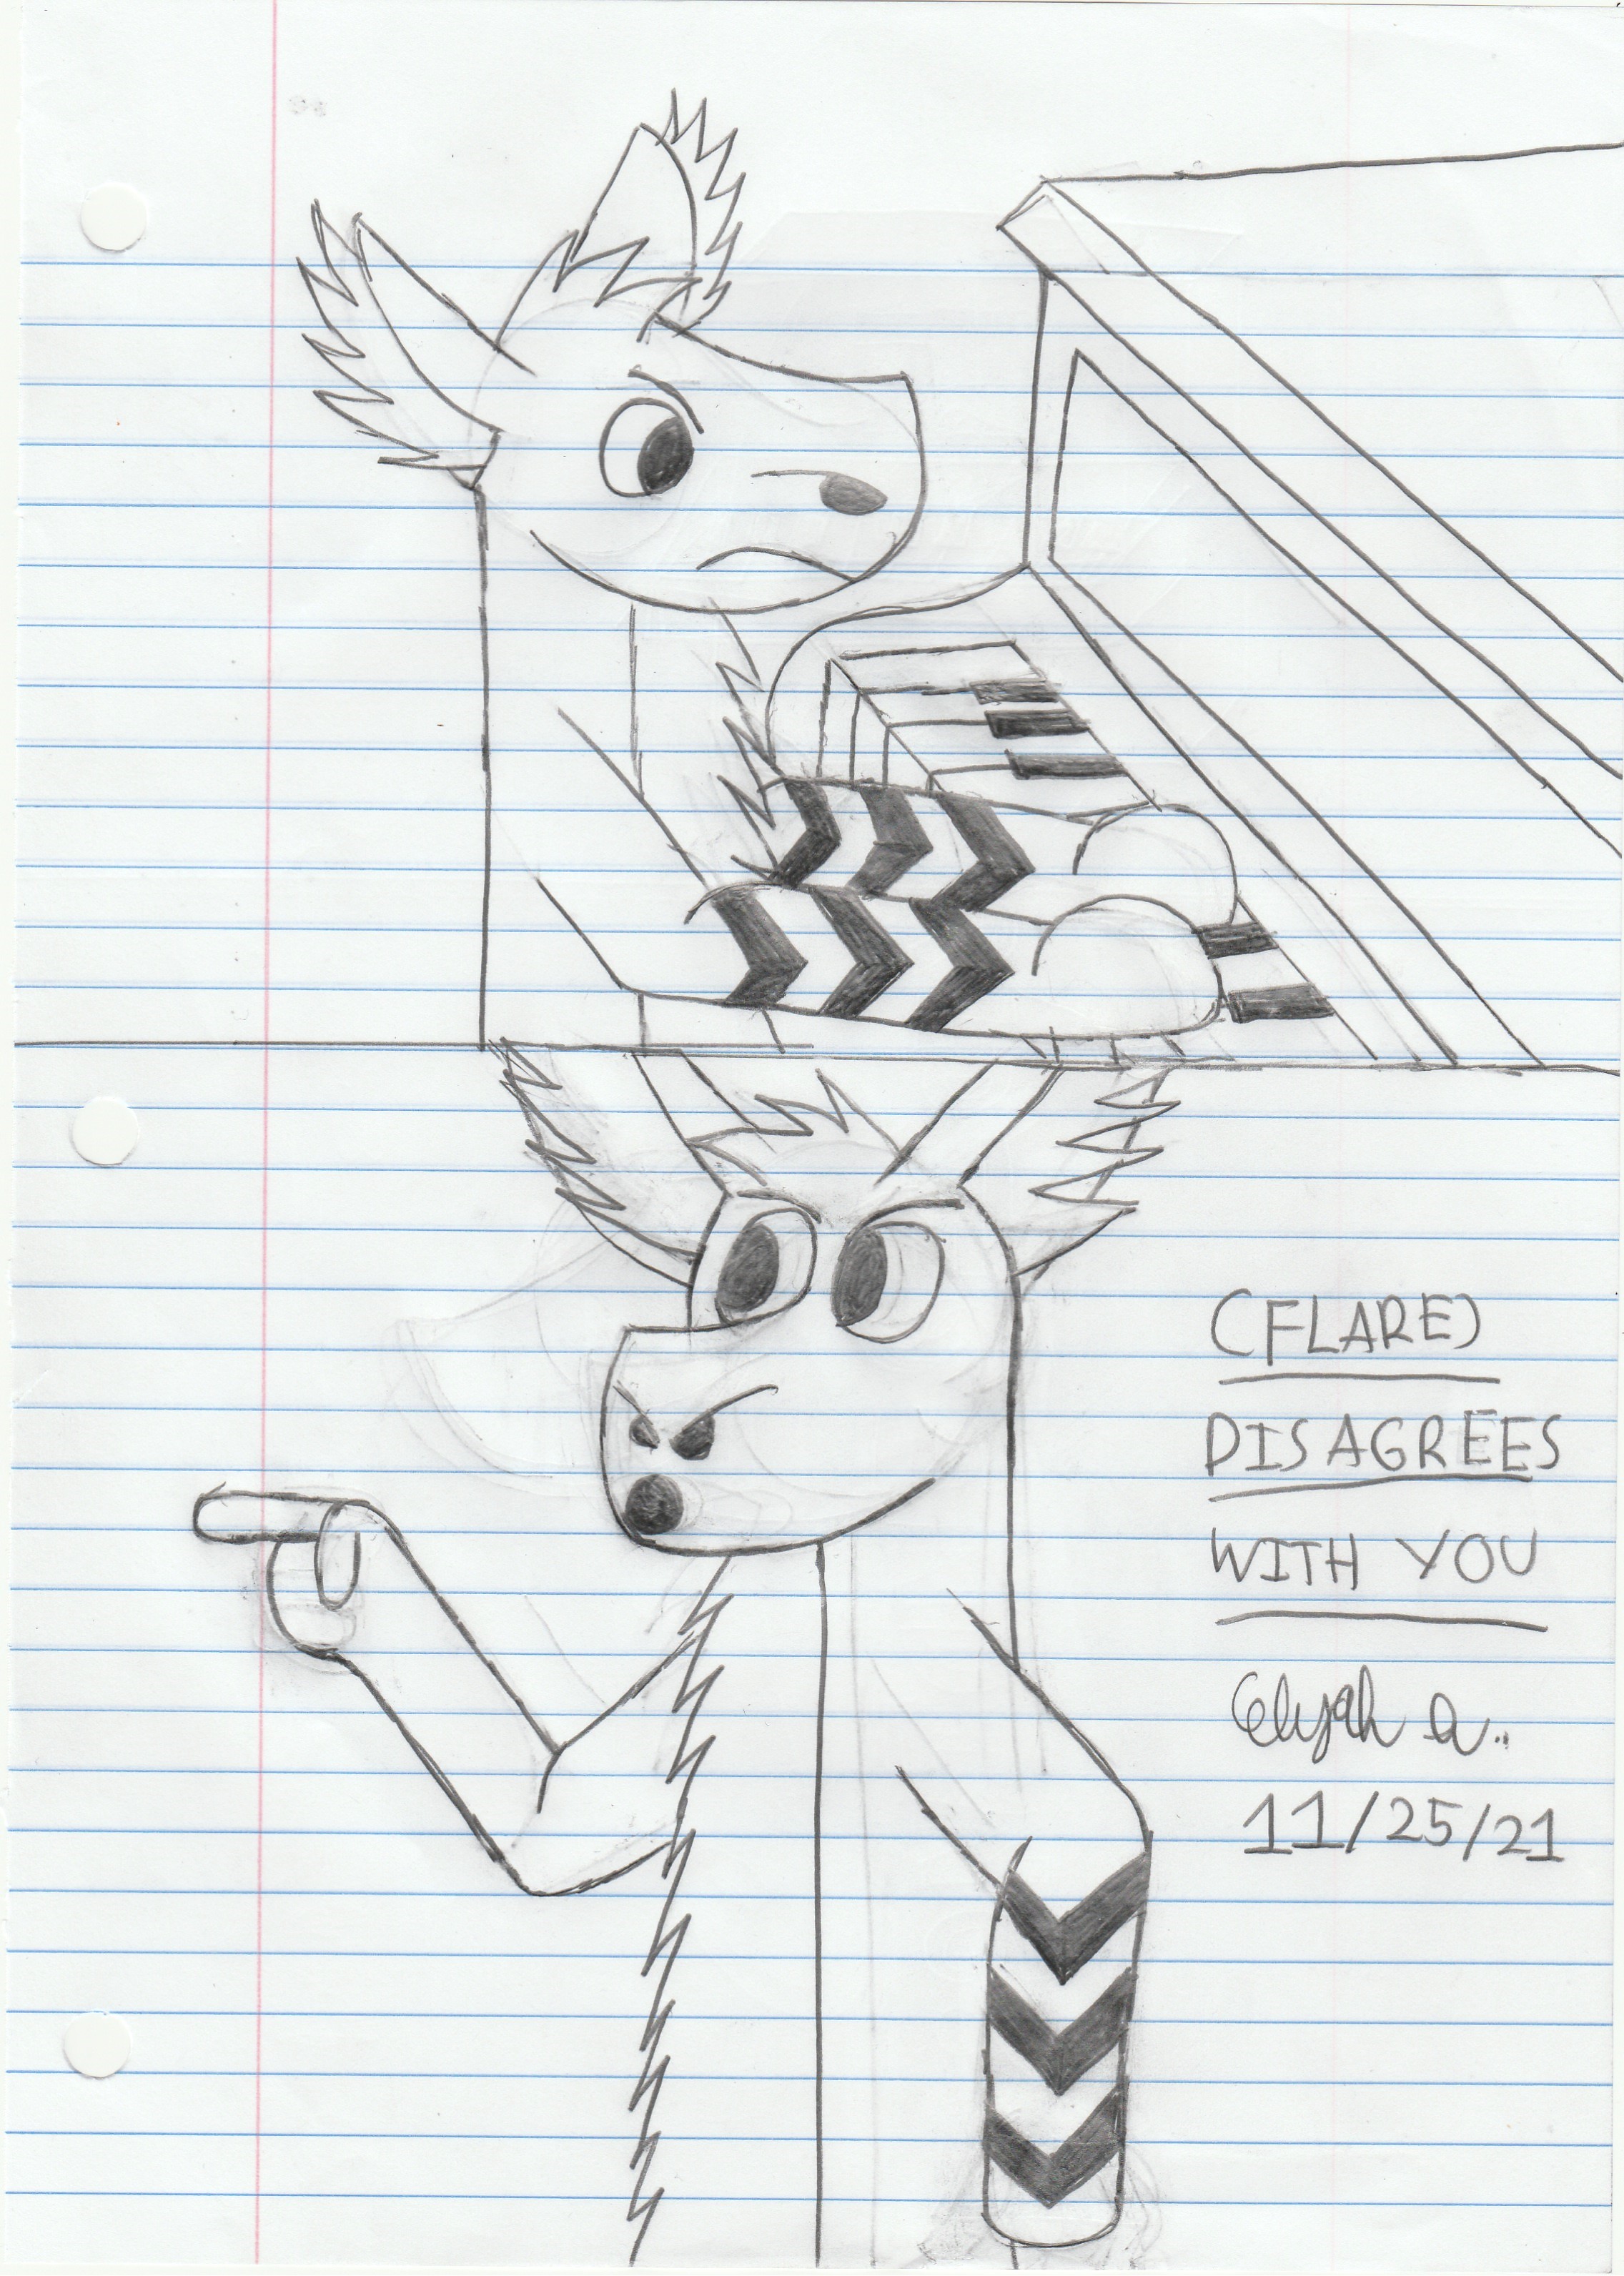 (FLARE)
DISAGREES
WITH YOU
Elijah a..
11/25/21